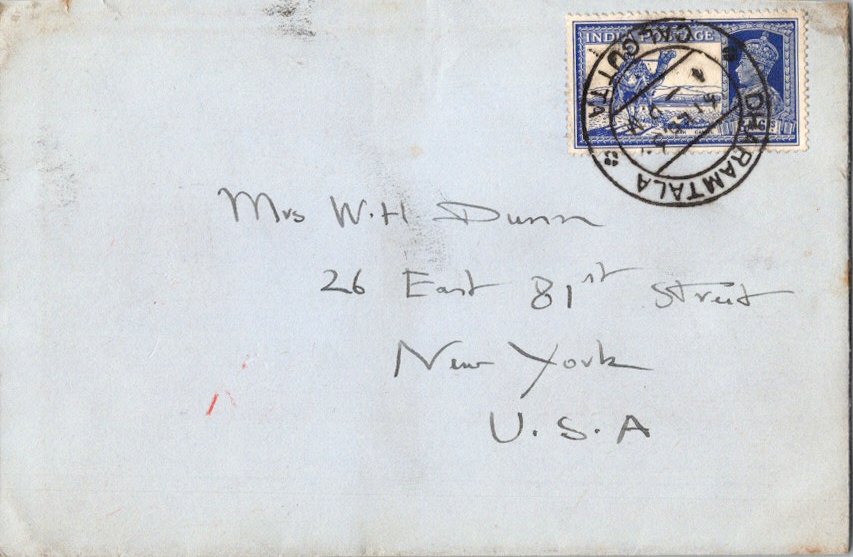 INDIA POSTAGE
DHARAMTALA
CALCUTTA
Mrs W.H Dunn
26 East 81st Street
New York
U.S.A